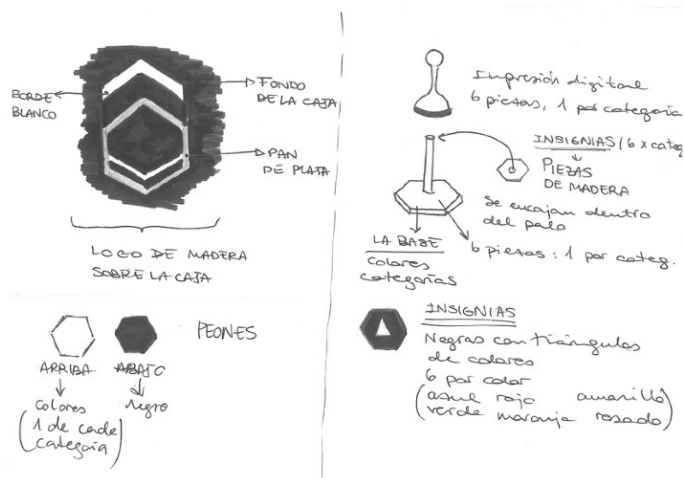 BORDE
BLANCO
FONDO
DE LA CAJA
PAN
DE PLATA
LOGO DE MADERA
SOBRE LA CAJA
PEONES
ARRIBA
ABAJO
colores
(1 de cada
categoría)
negro
Impresión digital
6 piezas, 1 por categoría
INSIGNIAS / 6 x categ
PIEZAS
DE MADERA
Se encajan dentro
del palo
LA BASE
colores
categorías
6 piezas: 1 por categ.
INSIGNIAS
Negras con triángulos
de colores
6 por color
(azul rojo amarillo
verde naranja rosado)